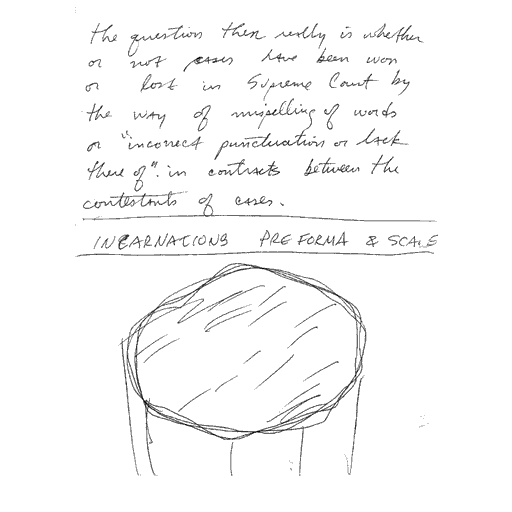 the question then really is whether
or not cases have been won
or lost in Supreme Court by
the way of mispelling of words
or "incorrect punctuation or lack
there of". in contracts between the
contestants of cases.
INCARNATIONS PRE FORMA & SCALE